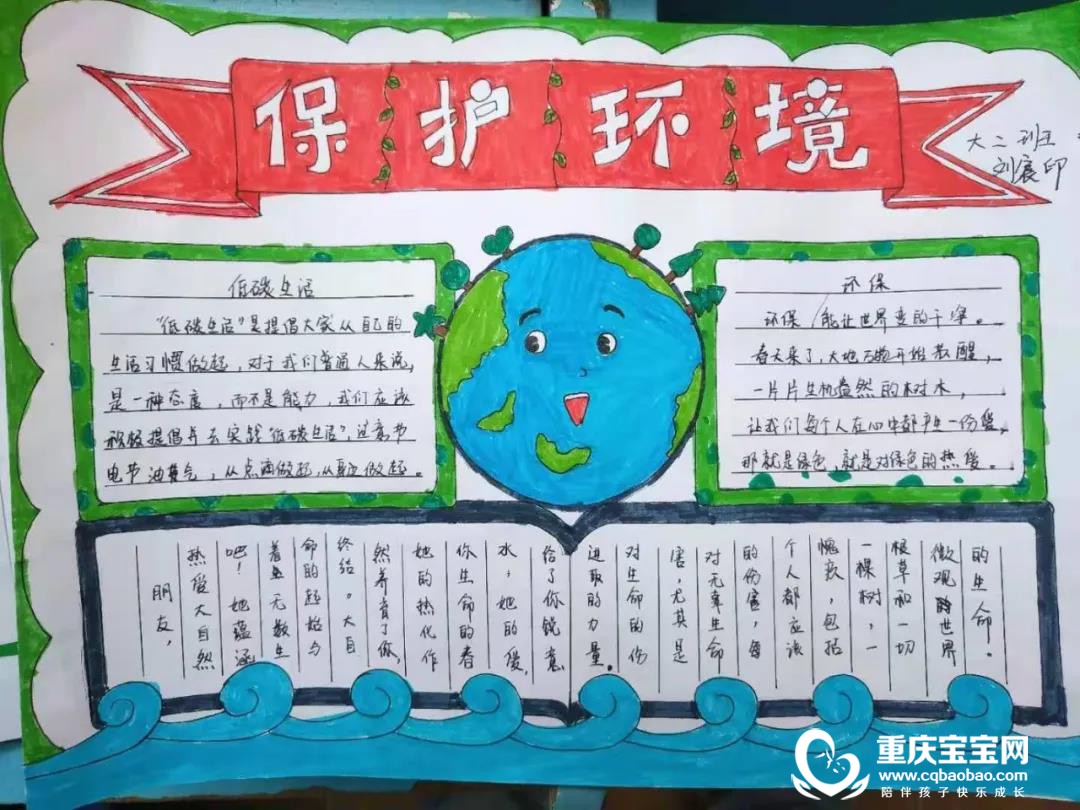 保护环境
大二班
刘宸印
低碳生活
"低碳生活"是提倡大家从自己的
生活习惯做起,对于我们普通人来说,
是一种态度,而不是能力,我们应该
积极提倡并去实践"低碳生活",注意节
电节油节气,从点滴做起,从身边做起。
环保
环保能让世界变的干净。
春天来了,大地万物开始苏醒,
一片片生机盎然的树木,
让我们每个人在心中都产生一份爱,
那就是绿色,就是对绿色的热爱。
朋友,
热爱大自然
吧!她蕴涵
着无数生
命的起始与
终结。大自
然养育了你,
她的热化作
你生命的春
水,她的爱,
给了你锐意
进取的力量。
对生命的伤
害,尤其是
对无辜生命
的伤害,每
个人都应该
愧疚,包括
一棵树,一
根草和一切
微观的世界
的生命。
重庆宝宝网
www.cqbaobao.com
陪伴孩子快乐成长